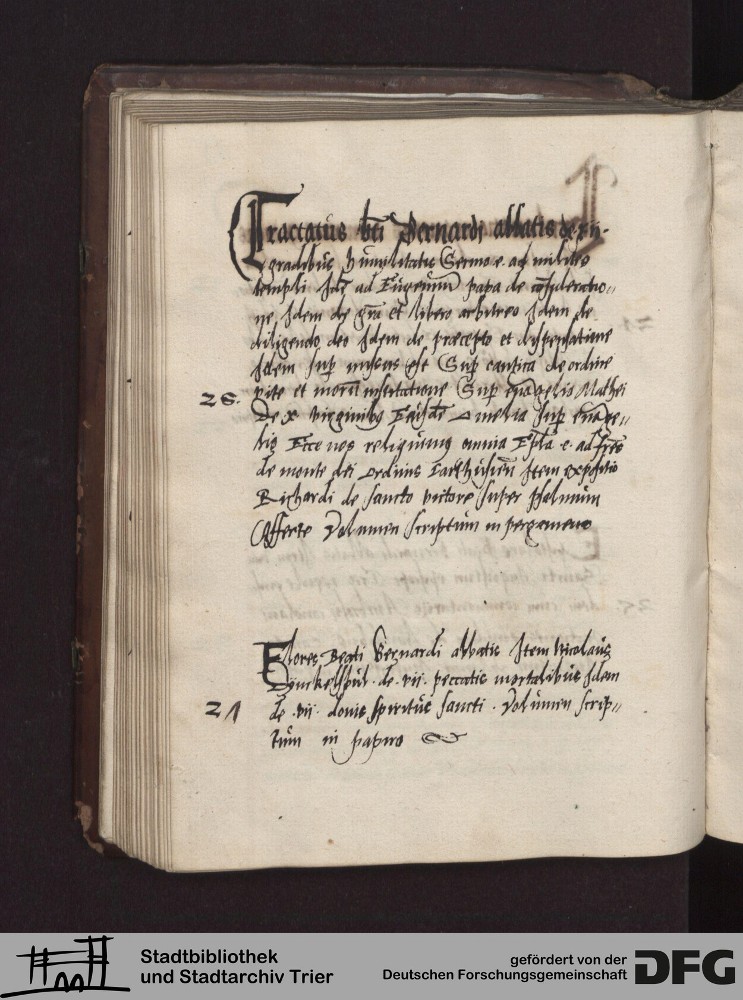 Tractatus bti Bernardi abbatis de xii
gradibus humilitatis Sermo e. ad milites
templi Idē ad Eugenium papā de cōsideratio„
ne Idem de gra et libero arbitreo Idem de
diligendo deo Idem de præcepto et dispensatione
Idem sup missus est Sup cantica de ordine
vite et morū Sup euāgelio Mathei
26.
De x virginibus Omelia sup euāge„
lio Ecce nos reliquimus omnia Epła e. ad fres
de monte dei ordinis Carthusien̄ Item expositio
Richardi de sancto victore super psalmum
Afferte Volumen scriptum in pergameno
Flores Beati Bernardi abbatis Item Nicolaus
Dÿnckelspul. de .vii. peccatis mortalibus Idem
21
de .vii. donis spiritus sancti. Volumen scrip„
tum in papiro
Stadtbibliothek
und Stadtarchiv Trier
gefördert von der
Deutschen Forschungsgemeinschaft
DFG